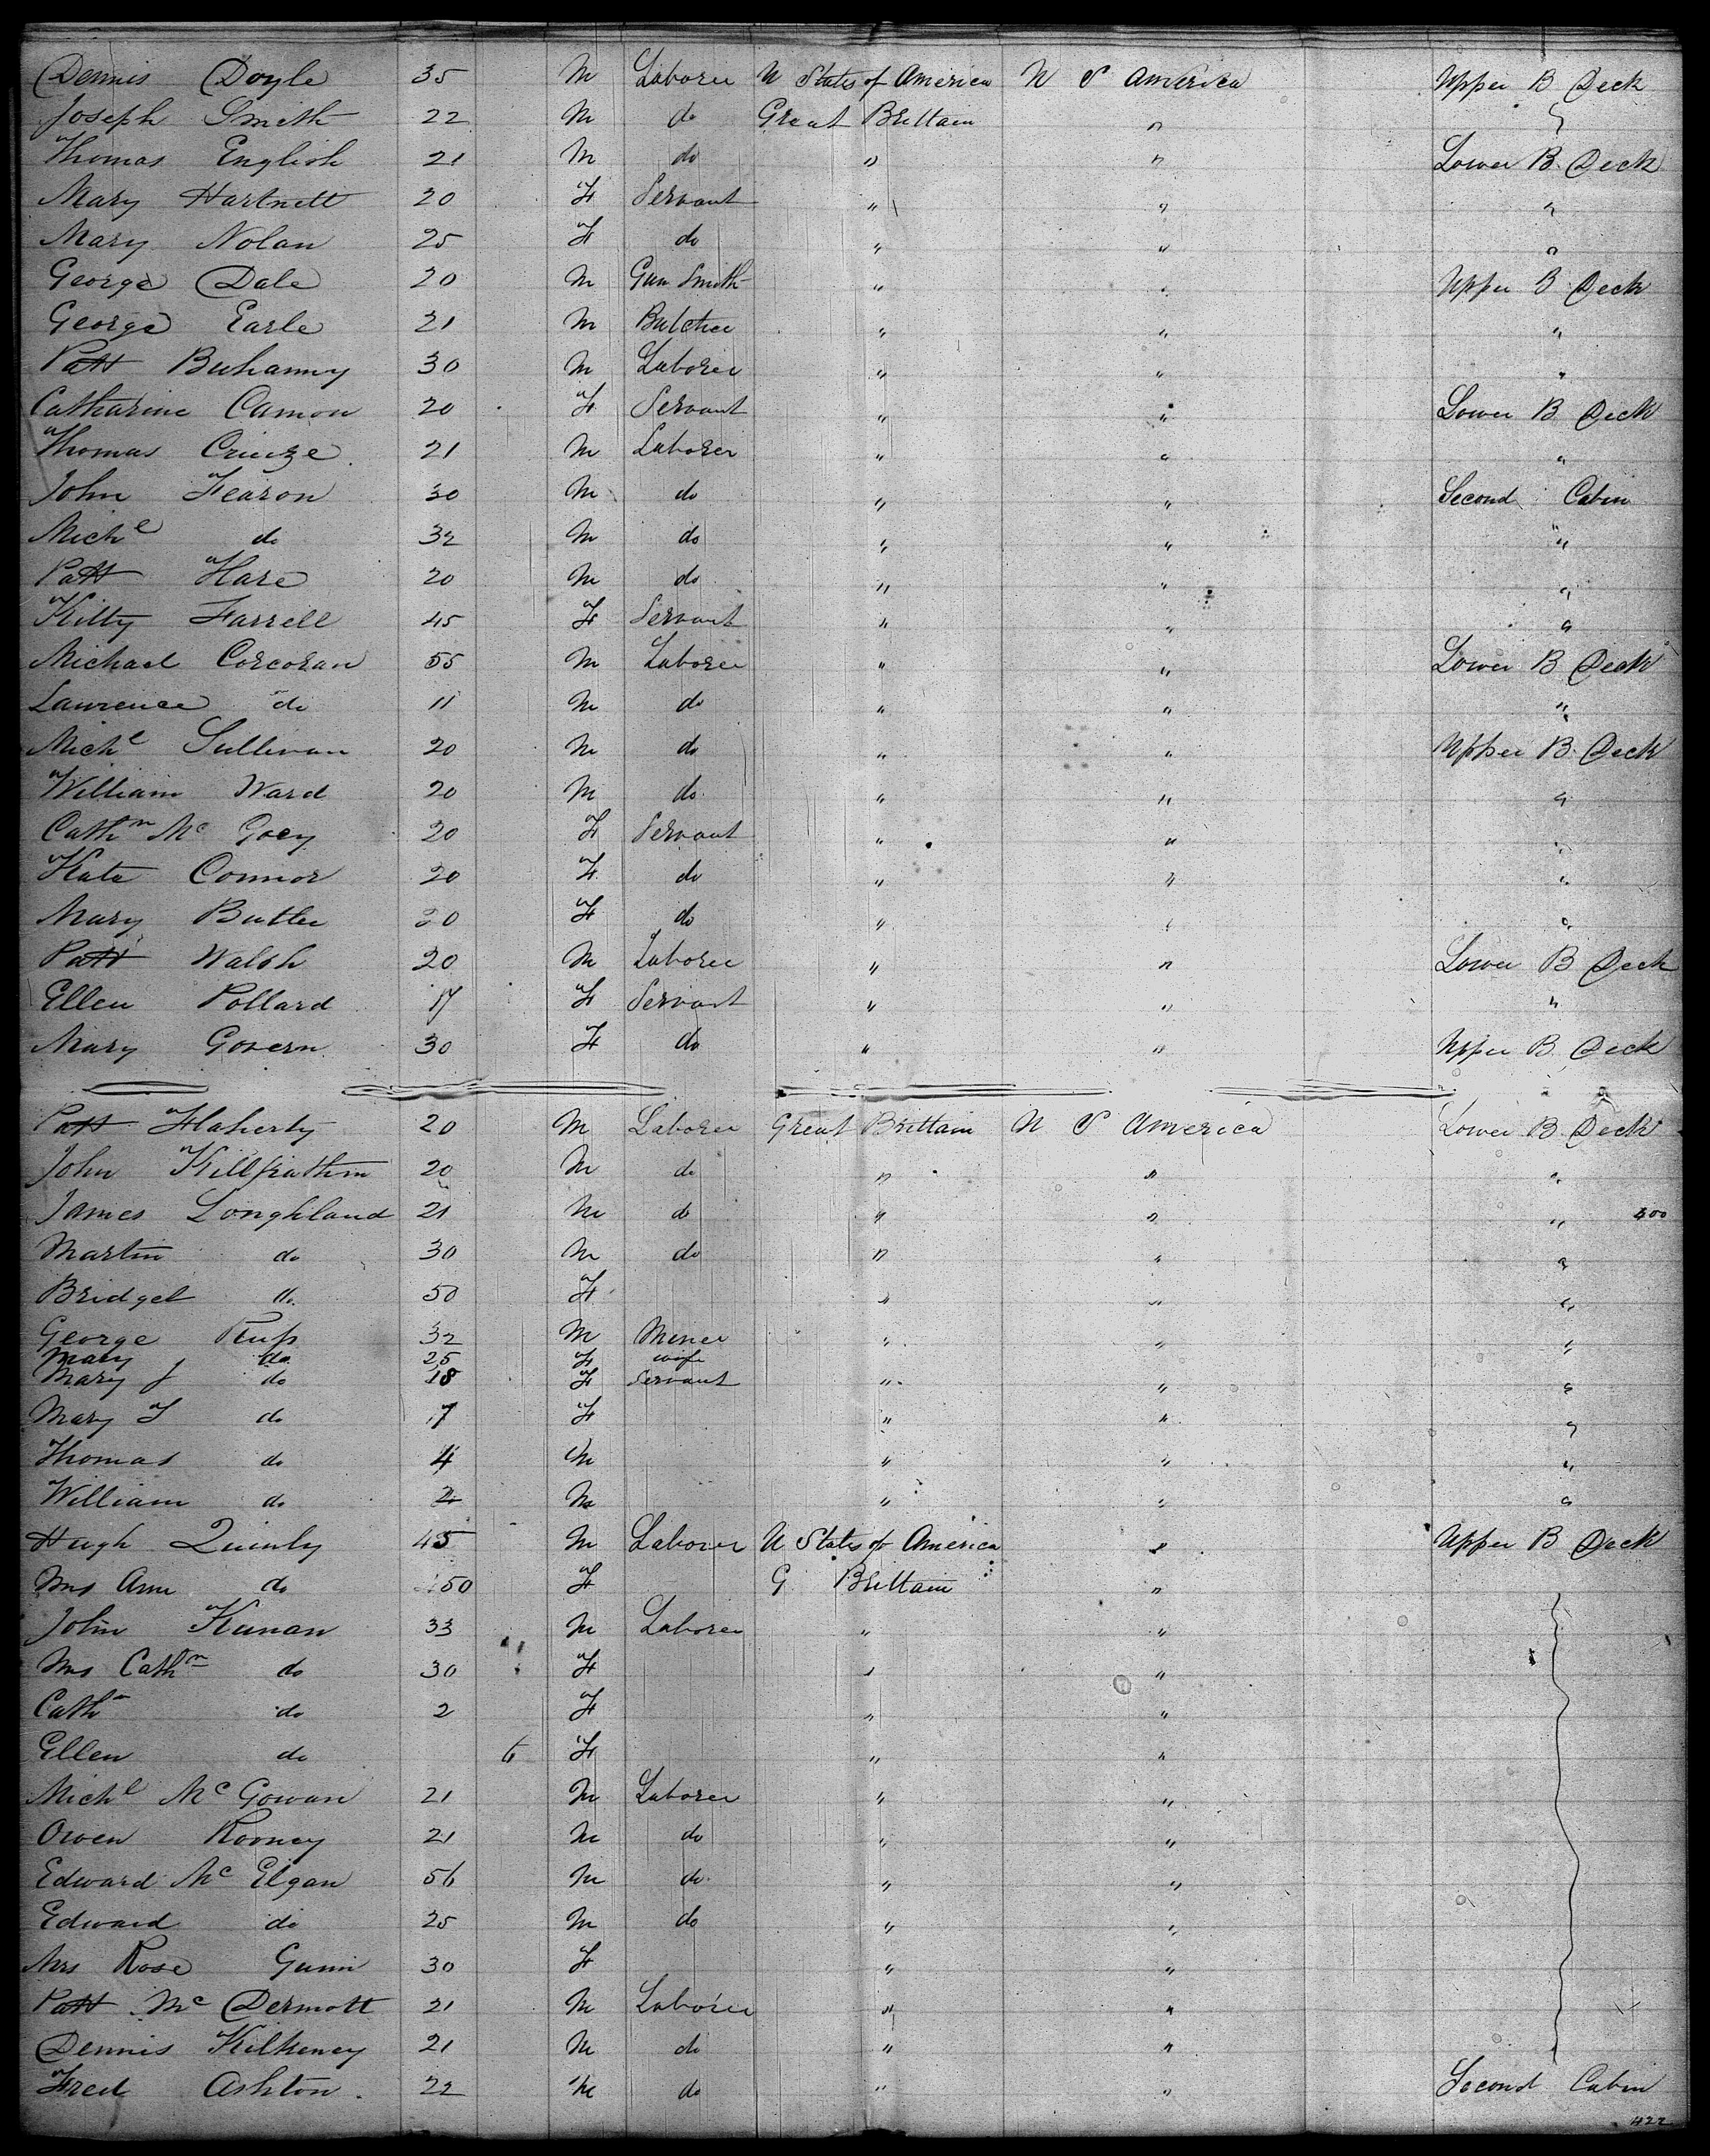 Dennis Doyle 35 M Laborer U States of America U S America Upper B Deck
Joseph Smith 22 M do Great Brittain " "
Thomas English 21 M do " " Lower B. Deck
Mary Hartnett 20 F Servant " " "
Mary Nolan 25 F do " " "
George Dale 20 M Gun Smith " " Upper B Deck
George Earle 21 M Butcher " " "
Patt Buhanny 30 M Laborer " " "
Catharine Camon 20 F Servant " " Lower B Deck
Thomas 21 M Laborer " " "
John Fearon 30 M do " " Second Cabin
Michl do 32 M do " " "
Patt Hare 20 M do " " "
Kitty Farrell 45 F Servant " " "
Michael Corcoran 55 M Laborer " " Lower B Deck
Lawrence do 11 M do " " "
Michl Sullivan 20 M do " " Upper B. Deck
William Ward 20 M do " " "
Cathn Mc Goey 20 F Servant " " "
Kate Connor 20 F do " " "
Mary Butler 20 F do " " "
Patt Walsh 20 M Laborer " " Lower B Deck
Ellen Pollard 17 F Servant " " "
Mary Govern 30 F do " " Upper B. Deck
Patt Flaherty 20 M Laborer Great Brittain U S America Lower B. Deck
John 20 M do " " "
James Longhland 21 M do " " " 400
Martin do 30 M do " " "
Bridget do 50 F " " "
George 32 M Miner " " "
Mary do 25 F wife
Mary J do 18 F Servant " " "
Mary T do 7 F " " "
Thomas do 4 M " " "
William do 2 M " " "
Hugh Quinly 45 M Laborer U States of America " Upper B Deck
Mrs Ann do 50 F G Brittain "
John Kunan 33 M Laborer " "
Mrs Cathn do 30 F " "
Cathn do 2 F " "
Ellen do 6 F " "
Michl Mc Gowan 21 M Laborer " "
Owen Rooney 21 M do " "
Edward Mc Elgan 56 M do " "
Edward do 25 M do " "
Mrs Rose Gunn 30 F " "
Patt Mc Dermott 21 M Laborer " "
Dennis Kilkeney 21 M do " "
Fred Ashton 22 M do " " Second Cabin
422